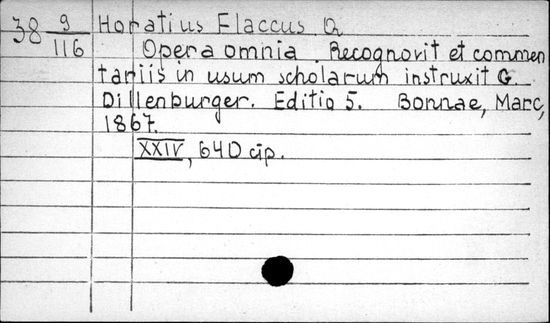 38 9/116 Horatius Flaccus Q
Opera omnia. Recognovit et commen
tariis in usum scholarum instruxit G.
Dillenburger. Editio 5. Bonnae, Marc,
1867.
XXIV, 640 стр.